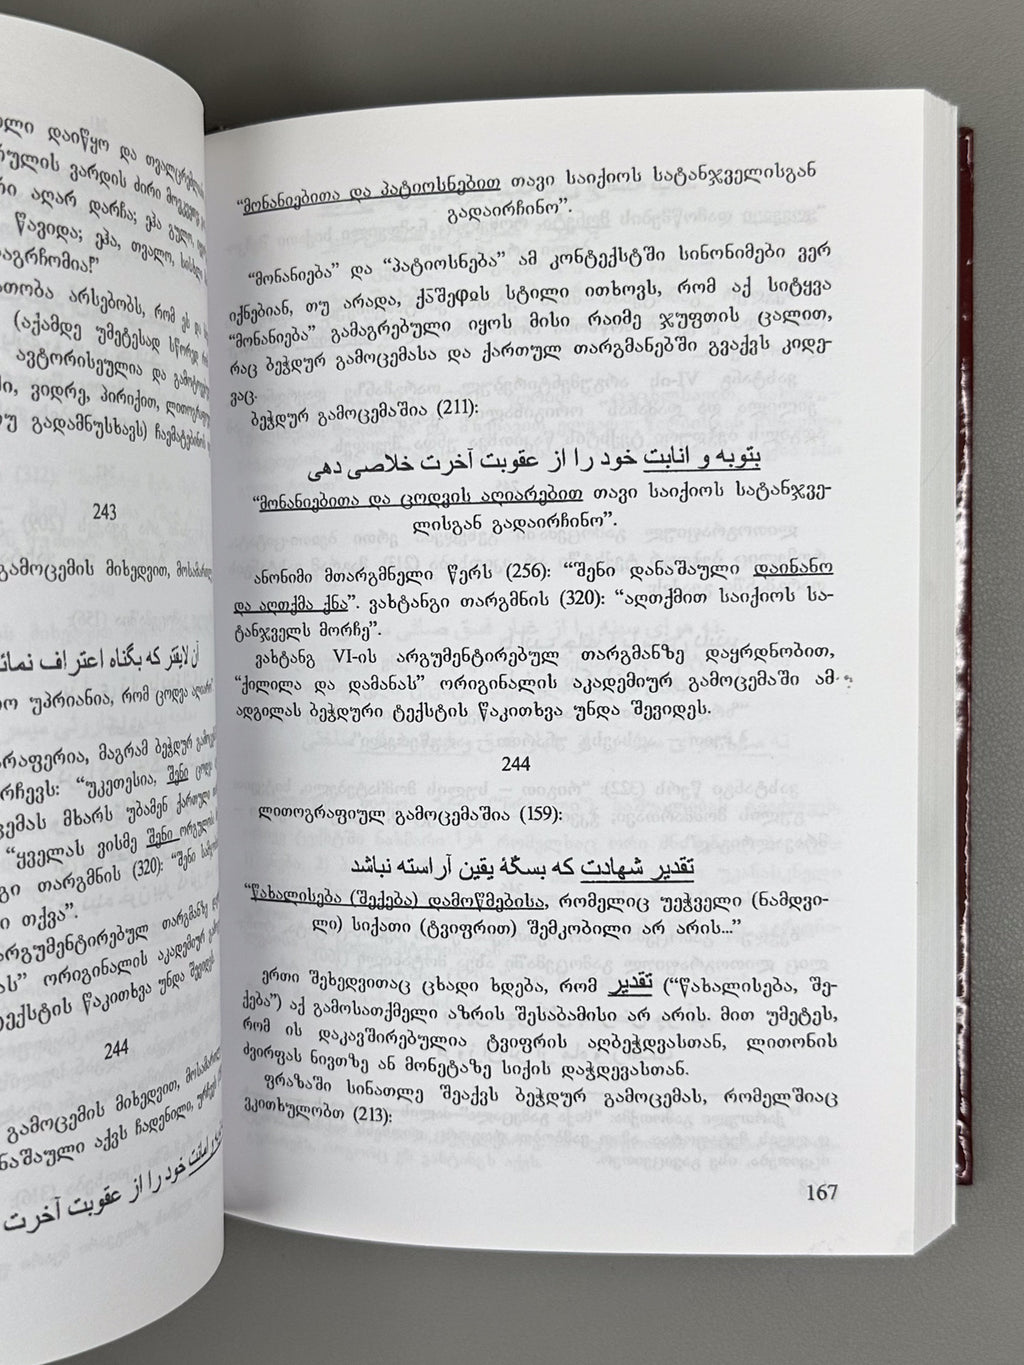 დაიწყო და თვალცრემლიანი
ვარდის ძირი
აღარ დარჩა; ეჰა გულო,
წავიდა; ეჰა, თვალო, სისხლი
არსებობს, რომ ეს
(აქამდე უმეტესად სწორედ
ავტორისეულია და
ვიდრე, პირიქით,
გადამნუსხავს) ჩაემატებინოს
243
გამოცემის მიხედვით,
آن لایقتر که بگناه اعتراف
უპრიანია, რომ ცოდვა
მაგრამ ბეჭდურ
“უკეთესია, შენი
მხარს უბამენ ქართული
“ყველას ვისმე შენი
თარგმნის (320): “შენი
თქვა”.
თარგმანზე
ორიგინალის აკადემიურ
წაკითხვა უნდა შევიდეს
244
გამოცემის მიხედვით,
აქვს ჩადენილი,
خود را از عقوبت آخرت
“მონანიებითა და პატიოსნებით თავი საიქიოს სატანჯველისგან
გადაირჩინო”.
“მონანიება” და “პატიოსნება” ამ კონტექსტში სინონიმები ვერ
იქნებიან, თუ არადა, ქა̄შეფის სტილი ითხოვს, რომ აქ სიტყვა
“მონანიება” გამაგრებული იყოს მისი რაიმე ჯუფთის ცალით,
რაც ბეჭდურ გამოცემასა და ქართულ თარგმანებში გვაქვს კიდე-
ვაც.
ბეჭდურ გამოცემაშია (211):
بتوبه و انابت خود را از عقوبت آخرت خلاصی دهی
“მონანიებითა და ცოდვის აღიარებით თავი საიქიოს სატანჯვე-
ლისგან გადაირჩინო”.
ანონიმი მთარგმნელი წერს (256): “შენი დანაშაული დაინანო
და აღთქმა ქნა”. ვახტანგი თარგმნის (320): “აღთქმით საიქიოს სა-
ტანჯველს მორჩე”.
ვახტანგ VI-ის არგუმენტირებულ თარგმანზე დაყრდნობით,
“ქილილა და დამანას” ორიგინალის აკადემიურ გამოცემაში ამ
ადგილას ბეჭდური ტექსტის წაკითხვა უნდა შევიდეს.
244
ლითოგრაფიულ გამოცემაშია (159):
تقدیر شهادت که بسکهٔ یقین آراسته نباشد
“წახალისება (შექება) დამოწმებისა, რომელიც უეჭველი (ნამდვი-
ლი) სიქათი (ტვიფრით) შემკობილი არ არის...”
ერთი შეხედვითაც ცხადი ხდება, რომ تقدیر (“წახალისება, შე-
ქება”) აქ გამოსათქმელი აზრის შესაბამისი არ არის. მით უმეტეს,
რომ ის დაკავშირებულია ტვიფრის აღბეჭდვასთან, ლითონის
ძვირფას ნივთზე ან მონეტაზე სიქის დაჭდევასთან.
ფრაზაში სინათლე შეაქვს ბეჭდურ გამოცემას, რომელშიაც
ვკითხულობთ (213):
167